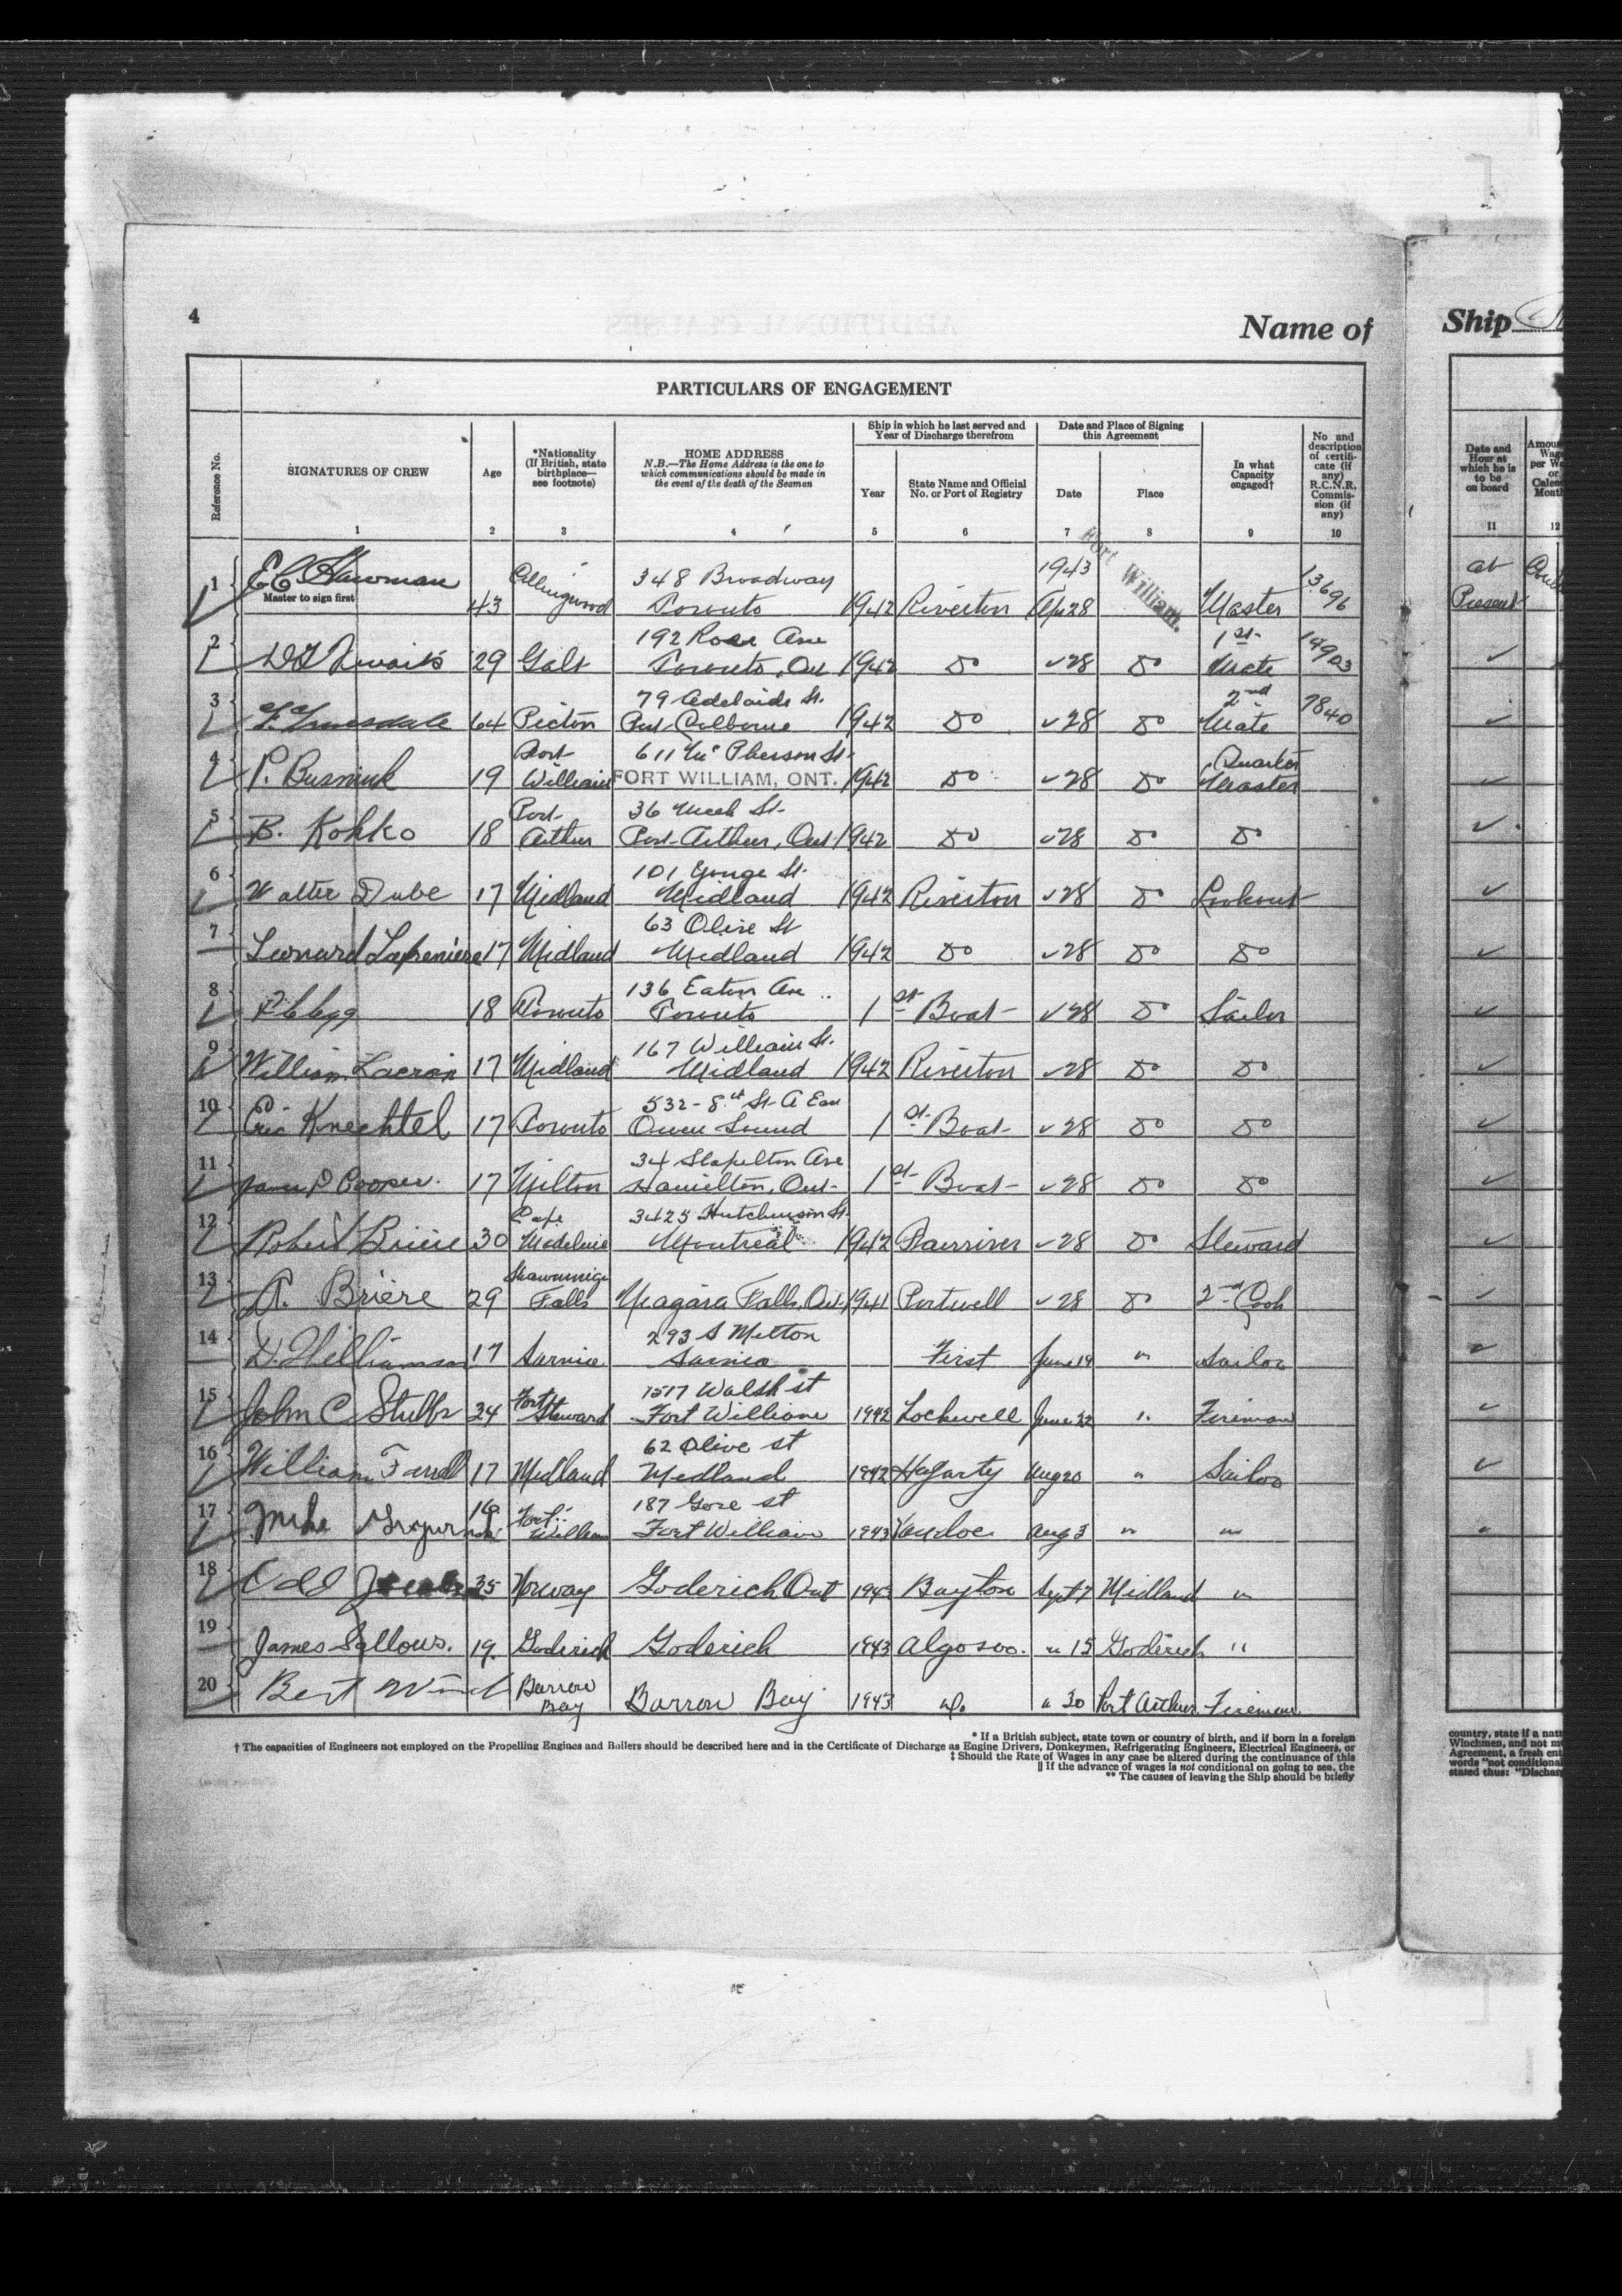 4
Name of
Ship
PARTICULARS OF ENGAGEMENT
Reference No.
SIGNATURES OF CREW
Age
*Nationality (If British, state birthplace— see footnote)
HOME ADDRESS
N.B.—The Home Address is the one to which communications should be made in the event of the death of the Seaman
Ship in which he last served and Year of Discharge therefrom
Year
State Name and Official No. or Port of Registry
Date and Place of Signing this Agreement
Date
Place
In what Capacity engaged†
No and description of certificate (if any) R.C.N.R. Commission (if any)
Date and Hour at which he is to be on board
1 2 3 4 5 6 7 8 9 10 11 12
1943 Fort William.
348 Broadway
1 Master to sign first 43 Collingwood Toronto 1942 Riverton Apr 28 Master 13696 at Present
192 Rose Ave 1st
2 29 Galt Toronto, Ont 1942 Do 28 Do Mate 14903
79 Adelaide St. 2nd
3 64 Picton Port Colborne 1942 Do 28 Do Mate 7840
Fort 611 Mc Pherson St. Quarter
4 P. Busniuk 19 William FORT WILLIAM, ONT. 1942 Do 28 Do Master
Port 36 St.
5 B. Kohko 18 Arthur Port Arthur, Ont 1942 Do 28 Do Do
101 Yonge St.
6 Walter Dube 17 Midland Midland 1942 Riverton 28 Do Lookout
63 Olive St
7 Leonard Lapreniere 17 Midland Midland 1942 Do 28 Do Do
136 Eaton Ave
8 Clegg 18 Toronto Toronto 1st Boat 28 Do Sailor
167 William St.
9 William 17 Midland Midland 1942 Riverton 28 Do Do
532 - 8th St. A East
10 Eric Knechtel 17 Toronto Owen Sound 1st Boat 28 Do Do
34 Stapelton Ave
11 James P Cooper. 17 Milton Hamilton, Ont 1st Boat 28 Do Do
Cape 3425 Hutchinson St.
12 Robert Briere 30 Madeleine Montreal 1942 28 Do Steward
Shawinigan
13 A. Brière 29 Falls Niagara Falls, Ont. 1941 Portwell 28 Do 2nd Cook
293 S Milton
14 D. Williamson 17 Sarnia Sarnia First June 19 " Sailor
Fort 1517 Walsh st
15 John C Stubbs 24 Steward Fort William 1942 Lockwell June 22 " Fireman
62 Olive st
16 William 17 Midland Midland 1942 Hagarty Aug 20 " Sailor
Fort 187 Gore st
17 Mike 16 William Fort William 1943 Aug 3 " "
18 Odd 25 Norway Goderich Ont 1943 Bayton Sept 7 Midland "
19 James Sallows. 19. Goderich Goderich 1943 Algosoo. " 15 Goderich "
20 Bert Barrow Bay Barrow Bay 1943 do " 30 Port Arthur Fireman
* If a British subject, state town or country of birth, and if born in a foreign
† The capacities of Engineers not employed on the Propelling Engines and Boilers should be described here and in the Certificate of Discharge as Engine Drivers, Donkeymen, Refrigerating Engineers, Electrical Engineers, or
‡ Should the Rate of Wages in any case be altered during the continuance of this
|| If the advance of wages is not conditional on going to sea, the
** The causes of leaving the Ship should be briefly
country, state if a
Winchmen, and not
Agreement, a fresh
words "not conditional
stated thus: